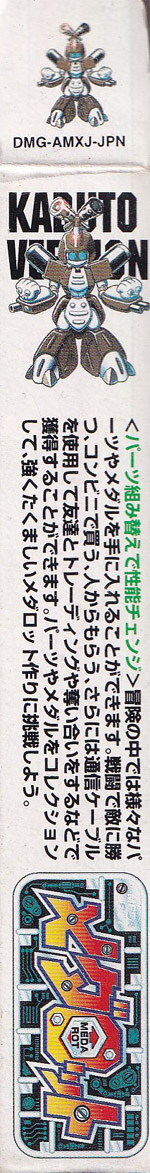 DMG-AMXJ-JPN
KABUTO
VERSION
<パーツ組み替えで性能チェンジ>冒険の中では様々なパ
ーツやメダルを手に入れることができます。戦闘で敵に勝
つ、コンビニで買う、人からもらう、さらには通信ケーブル
を使用して友達とトレーディングや奪い合いをするなどで
獲得することができます。パーツやメダルをコレクション
して、強くたくましいメダロット作りに挑戦しよう。
メダロット
MEDA
ROT